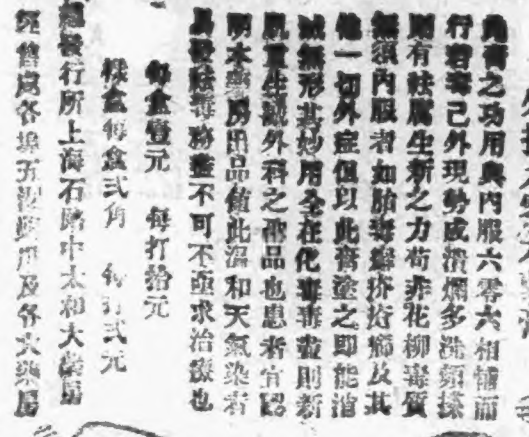 此膏之功用與內服六零六相輔而
行若毒已外現勢成潰爛多洗頻搽
則有祛腐生新之力苟非花柳毒質
無須內服者如胎毒癬疥疔癤及其
他一切外症但以此膏塗之即能消
滅無形其妙用全在化毒毒盡則新
肌重生誠外科之聖品也患者宜認
明本藥房出品值此溫和天氣染者
易發祛毒務盡不可不亟求治療也
每盒壹元 每打拾元
樣盒每盒弍角 每打弍元
總發行所上海石路中太和大藥房
經售處各埠五洲藥房及各大藥房